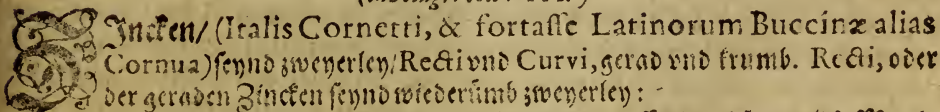 Zincken/ (Italis Cornetti, & fortasse Latinorum Buccinæ alias
Cornua) seynd zweyerley/ Recti vnd Curvi, gerad vnd krumb. Recti, oder
der geraden Zincken seynd wiederümb zweyerley: